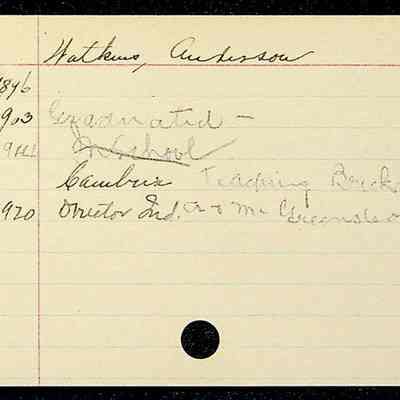 Watkins, Anderson
1896
1903 Graduated -
In School
Cambria Teaching Brick
1920 Director Ind. A + M. Greensboro